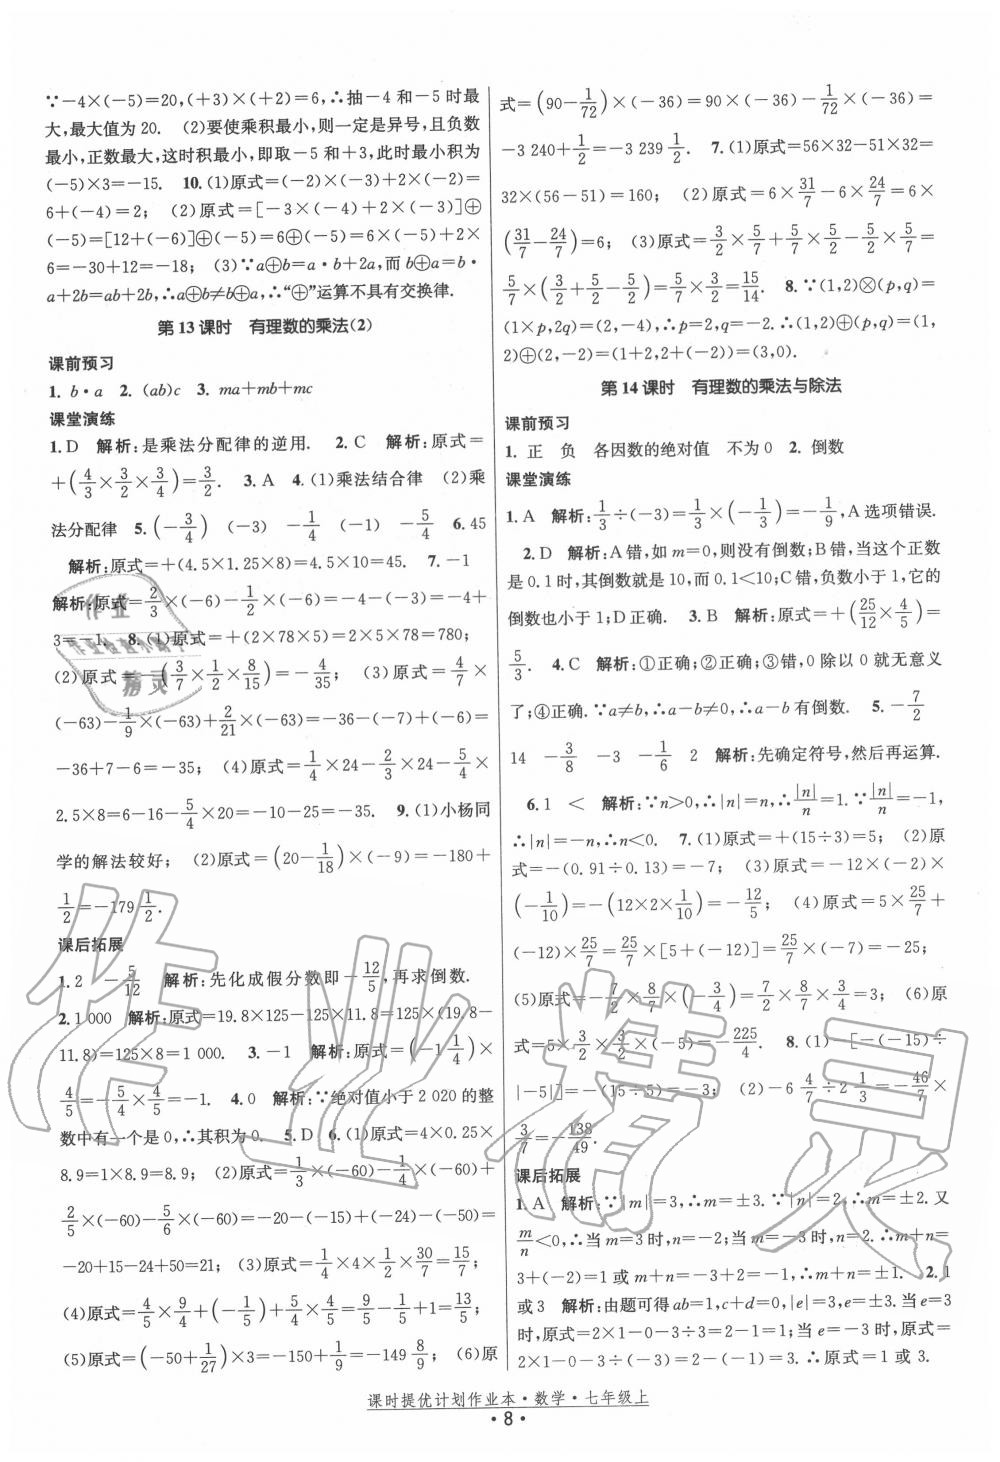 ∵－4×(－5)＝20,(＋3)×(＋2)＝6,∴抽－4 和－5 时最
大,最大值为 20. (2)要使乘积最小,则一定是异号,且负数
最小,正数最大,这时积最小,即取－5 和＋3,此时最小积为
(－5)×3＝－15. 10. (1)原式＝(－2)×(－3)＋2×(－2)＝
6＋(－4)＝2; (2)原式＝[－3×(－4)＋2×(－3)]⊕
(－5)＝[12＋(－6)]⊕(－5)＝6⊕(－5)＝6×(－5)＋2×
6＝－30＋12＝－18; (3)∵a⊕b＝a·b＋2a,而 b⊕a＝b·
a＋2b＝ab＋2b,∴a⊕b≠b⊕a,∴“⊕”运算不具有交换律.
第 13 课时 有理数的乘法(2)
课前预习
1. b·a 2. (ab)c 3. ma＋mb＋mc
课堂演练
1. D 解析:是乘法分配律的逆用. 2. C 解析:原式＝
＋(4/3×3/2×3/4)＝3/2. 3. A 4. (1)乘法结合律 (2)乘
法分配律 5. (－3/4) (－3) －1/4 (－1) －5/4 6. 45
解析:原式＝＋(4.5×1.25×8)＝4.5×10＝45. 7. －1
解析:原式＝2/3×(－6)－1/2×(－6)＝－4－(－3)＝－4＋
3＝－1. 8. (1)原式＝＋(2×78×5)＝2×5×78＝780;
(2)原式＝－(3/7×1/2×8/15)＝－4/35; (3)原式＝4/7×
(－63)－1/9×(－63)＋2/21×(－63)＝－36－(－7)＋(－6)＝
－36＋7－6＝－35; (4)原式＝1/4×24－2/3×24－5/4×
2.5×8＝6－16－5/4×20＝－10－25＝－35. 9. (1)小杨同
学的解法较好; (2)原式＝(20－1/18)×(－9)＝－180＋
1/2＝－179 1/2.
课后拓展
1. 2 －5/12 解析:先化成假分数即－12/5,再求倒数.
2. 1 000 解析:原式＝19.8×125－125×11.8＝125×(19.8－
11.8)＝125×8＝1 000. 3. －1 解析:原式＝(－1 1/4)×
4/5＝－5/4×4/5＝－1. 4. 0 解析:∵绝对值小于 2 020 的整
数中有一个是 0,∴其积为 0. 5. D 6. (1)原式＝4×0.25×
8.9＝1×8.9＝8.9; (2)原式＝1/3×(－60)－1/4×(－60)＋
2/5×(－60)－5/6×(－60)＝－20－(－15)＋(－24)－(－50)＝
－20＋15－24＋50＝21; (3)原式＝1/4×4×1/2×30/7＝15/7;
(4)原式＝4/5×9/4＋(－1/5)＋5/4×4/5＝9/5－1/5＋1＝13/5;
(5)原式＝(－50＋1/27)×3＝－150＋1/9＝－149 8/9; (6)原
式＝(90－1/72)×(－36)＝90×(－36)－1/72×(－36)＝
－3 240＋1/2＝－3 239 1/2. 7. (1)原式＝56×32－51×32＝
32×(56－51)＝160; (2)原式＝6×31/7－6×24/7＝6×
(31/7－24/7)＝6; (3)原式＝3/2×5/7＋5/2×5/7－5/2×5/7＝
5/7×(3/2＋5/2－5/2)＝5/7×3/2＝15/14. 8. ∵(1,2)⊗(p,q)＝
(1×p,2q)＝(2,－4),∴p＝2,q＝－2.∴(1,2)⊕(p,q)＝(1,
2)⊕(2,－2)＝(1＋2,2＋(－2))＝(3,0).
第 14 课时 有理数的乘法与除法
课前预习
1. 正 负 各因数的绝对值 不为 0 2. 倒数
课堂演练
1. A 解析:1/3÷(－3)＝1/3×(－1/3)＝－1/9,A 选项错误.
2. D 解析:A 错,如 m＝0,则没有倒数;B 错,当这个正数
是 0.1 时,其倒数就是 10,而 0.1<10;C 错,负数小于 1,它的
倒数也小于 1;D 正确. 3. B 解析:原式＝＋(25/12×4/5)＝
5/3. 4. C 解析:①正确;②正确;③错,0 除以 0 就无意义
了;④正确.∵a≠b,∴a－b≠0,∴a－b 有倒数. 5. －7/2
14 －3/8 －3 －1/6 2 解析:先确定符号,然后再运算.
6. 1 < 解析:∵n>0,∴|n|＝n,∴|n|/n＝1.∵|n|/n＝－1,
∴|n|＝－n,∴n<0. 7. (1)原式＝＋(15÷3)＝5; (2)原
式＝－(0.91÷0.13)＝－7; (3)原式＝－12×(－2)×
(－1/10)＝－(12×2×1/10)＝－12/5; (4)原式＝5×25/7＋
(－12)×25/7＝25/7×[5＋(－12)]＝25/7×(－7)＝－25;
(5)原式＝－7/2×8/7×(－3/4)＝7/2×8/7×3/4＝3; (6)原
式＝5×3/2×3/2×(－5)＝－225/4. 8. (1)－[－(－15)÷
|－5|]＝(－15÷5)＝－3; (2)－6 4/7÷2 1/3＝－46/7×
3/7＝－138/49.
课后拓展
1. A 解析:∵|m|＝3,∴m＝±3.∵|n|＝2,∴n＝±2. 又
m/n<0,∴当 m＝3 时,n＝－2;当 m＝－3 时,n＝2.∴m＋n＝
3＋(－2)＝1 或 m＋n＝－3＋2＝－1,∴m＋n＝±1. 2. 1
或 3 解析:由题可得 ab＝1,c＋d＝0,|e|＝3,e＝±3.当 e＝3
时,原式＝2×1－0－3÷3＝2－1＝1;当 e＝－3 时,原式＝
2×1－0－3÷(－3)＝2＋1＝3. ∴原式＝1 或 3.
课时提优计划作业本·数学·七年级上
·8·
作业精灵